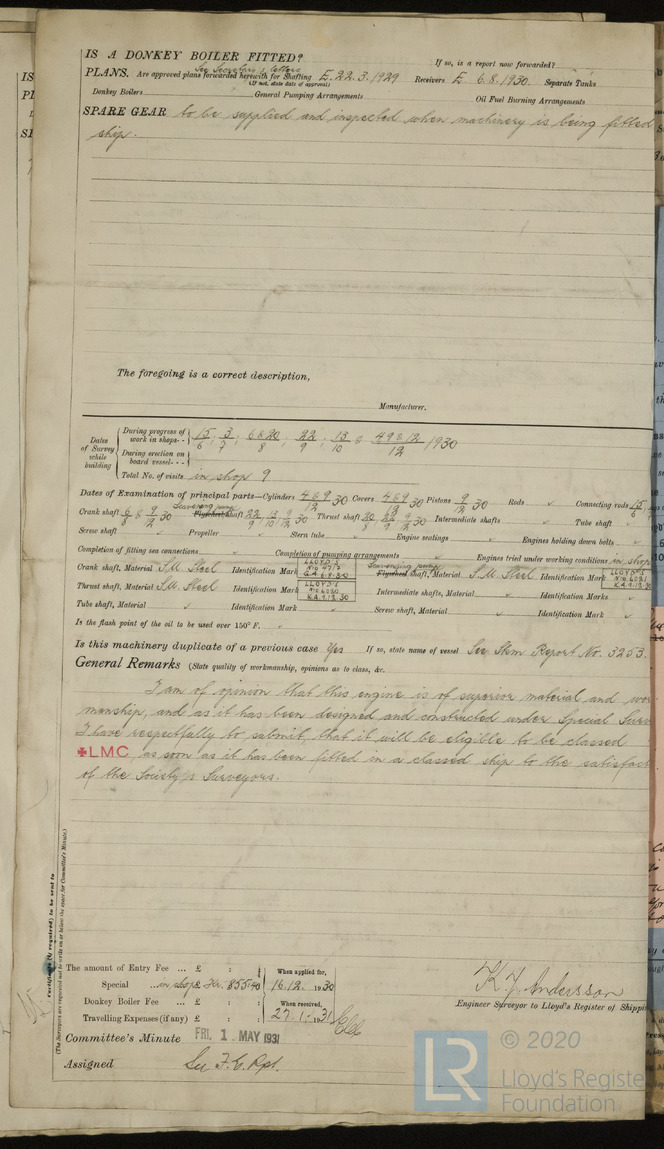 IS A DONKEY BOILER FITTED? If so, is a report now forwarded?
See Secretary's letters
PLANS. Are approved plans forwarded herewith for Shafting E. 22.3.1929 Receivers E 6.8.1930. Separate Tanks
(If not, state date of approval)
Donkey Boilers General Pumping Arrangements Oil Fuel Burning Arrangements
SPARE GEAR to be supplied and inspected when machinery is being fitted
ship.
The foregoing is a correct description,
Manufacturer.
Dates of Survey while building
During progress of work in shops - - 15/6, 3/7, 6 & 20/8, 22/9, 13/10 & 4 9 & 12/12 1930
During erection on board vessel - - -
Total No. of visits in shop 9
Dates of Examination of principal parts—Cylinders 4 & 9/12 30 Covers 4 & 9 30 Pistons 9/12 30 Rods ✓ Connecting rods 15/6
Scavenging pump
Crank shaft 6/8 & 9/12 30 Flywheel shaft 22/9 13/10 9/12 30 Thrust shaft 20/8 9/12 30 Intermediate shafts ✓ Tube shaft ✓
Screw shaft ✓ Propeller ✓ Stern tube ✓ Engine seatings ✓ Engines holding down bolts ✓
Completion of fitting sea connections ✓ Completion of pumping arrangements ✓ Engines tried under working conditions in shop
Crank shaft, Material S.M. Steel Identification Mark LLOYD'S Scavenging pump Flywheel shaft, Material S.M. Steel Identification Mark LLOYD'S
Thrust shaft, Material S.M. Steel Identification Mark LLOYD'S K.A. 9.12.30 Intermediate shafts, Material ✓ Identification Marks
Tube shaft, Material ✓ Identification Mark ✓ Screw shaft, Material ✓ Identification Mark ✓
Is the flash point of the oil to be used over 150° F. ✓
Is this machinery duplicate of a previous case Yes If so, state name of vessel See Skm Report No. 3253.
General Remarks (State quality of workmanship, opinions as to class, &c.
I am of opinion that this engine is of superior material and wor
manship, and as it has been designed and constructed under Special Surv
I have respectfully to submit, that it will be eligible to be classed
✠LMC, as soon as it has been fitted in a classed ship to the satisfact
of the Society's Surveyors.
Certificate (if required) to be sent to
(The Surveyors are requested not to write on or below the space for Committee's Minute.)
The amount of Entry Fee ... £ : : When applied for,
Special ... in shop £ Kr. 855:40 16.12. 1930
Donkey Boiler Fee ... £ : : When received,
Travelling Expenses (if any) £ : : 27.1.1931
K. J. Andersson
Engineer Surveyor to Lloyd's Register of Shippi
Committee's Minute FRI. 1 MAY 1931
Assigned See F.E. Rpt.
LR © 2020
Lloyd's Registe
Foundation